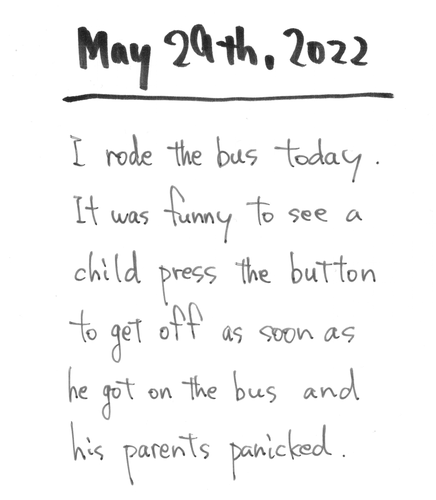 May 29th, 2022
I rode the bus today.
It was funny to see a
child press the button
to get off as soon as
he got on the bus and
his parents panicked.